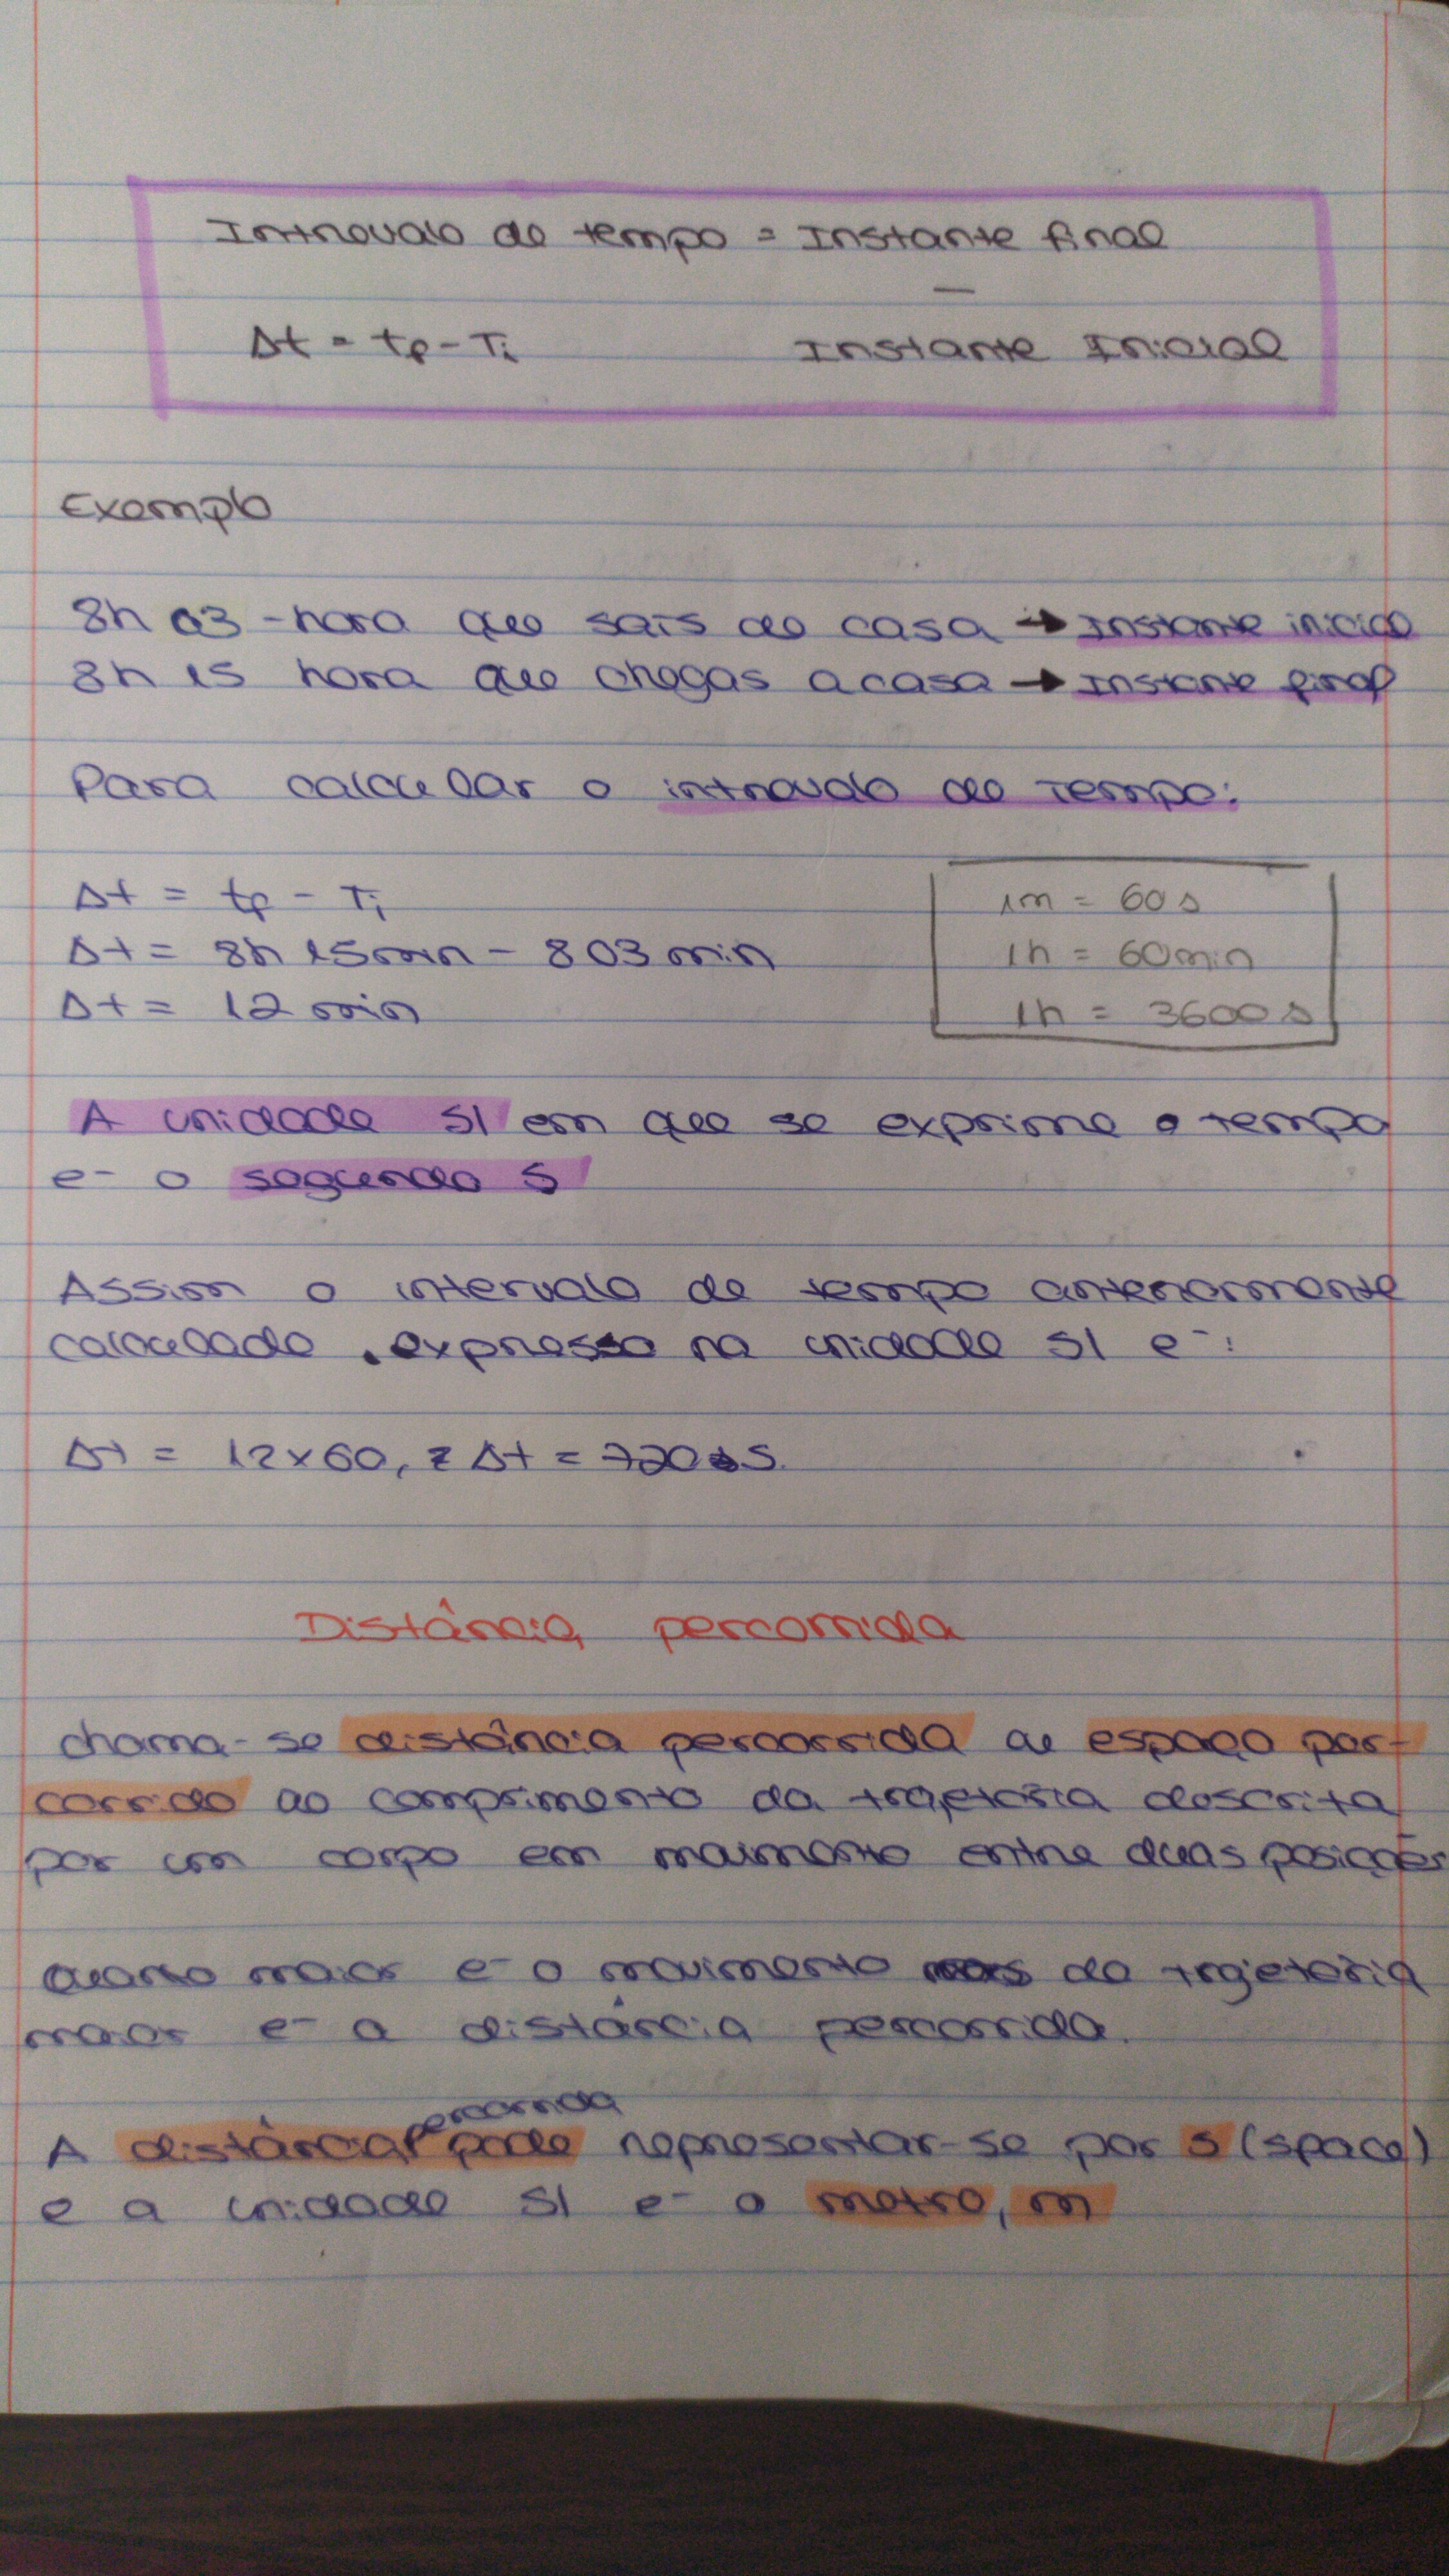 Introvalo de tempo = Instante final
—
Δt = tf - Ti Instante Inicial
Exemplo
8h 03 - hora que sais de casa → Instante inicial
8h 15 hora que chegas a casa → Instante final
Para calcular o introvalo de Tempo:
Δt = tf - Ti
Δt = 8h 15min - 8 03 min
Δt = 12 min
1m = 60 s
1h = 60min
1h = 3600 s
A unidade SI em que se exprime o tempo
é o segundo S
Assim o intervalo de tempo anteriormente
calculado, expresso na unidade SI é:
Δt = 12x60, = Δt = 720 s.
Distância percorrida
chama-se distância percorrida ou espaço per-
corrido ao comprimento da trajetória descrita
por um corpo em movimento entre duas posições
quanto maior é o movimento da trajetória
maior é a distância percorrida.
percorrida
A distância pode representar-se por s (space)
e a unidade SI é o metro, m